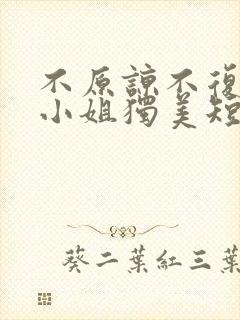 不原諒不復
小姐獨美短
葵二葉紅三葉